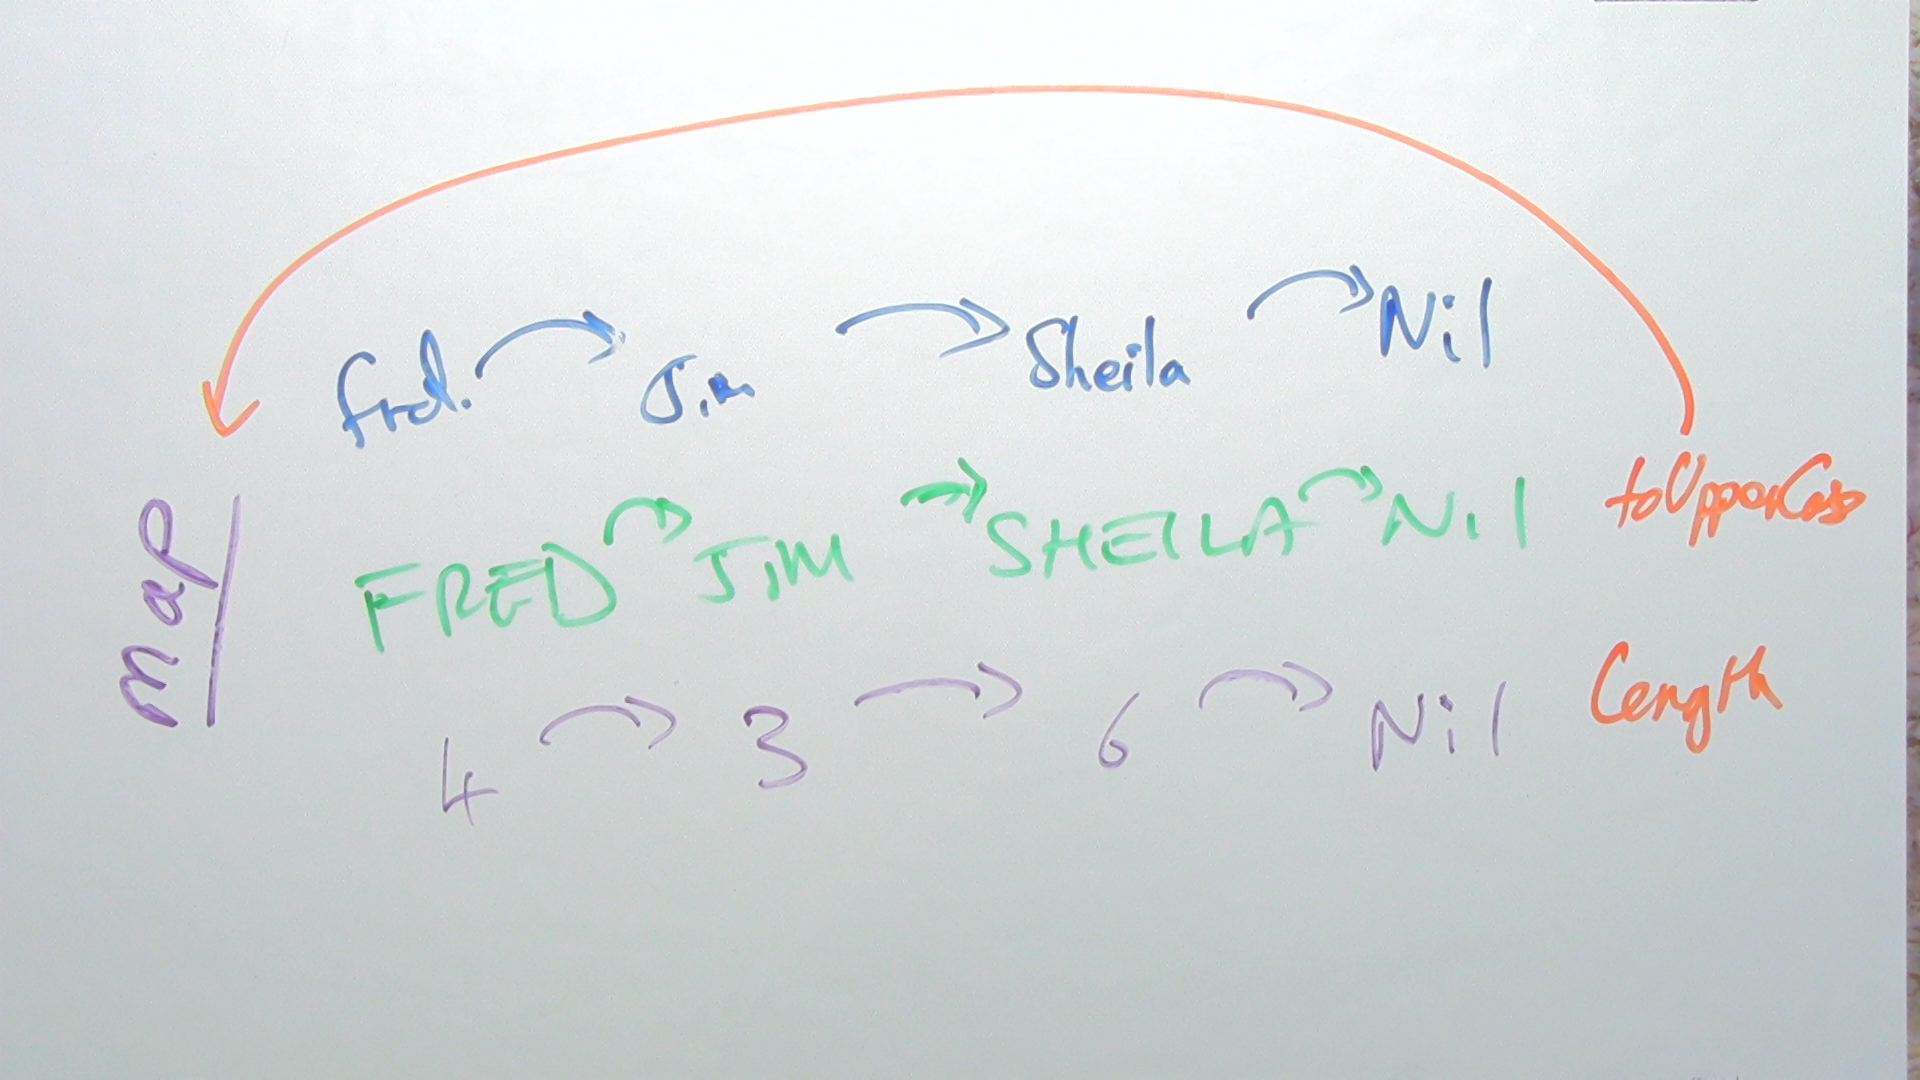 Fred. Jim Sheila Nil
FRED JIM SHEILA Nil toUpperCase
map
4 3 6 Nil Length